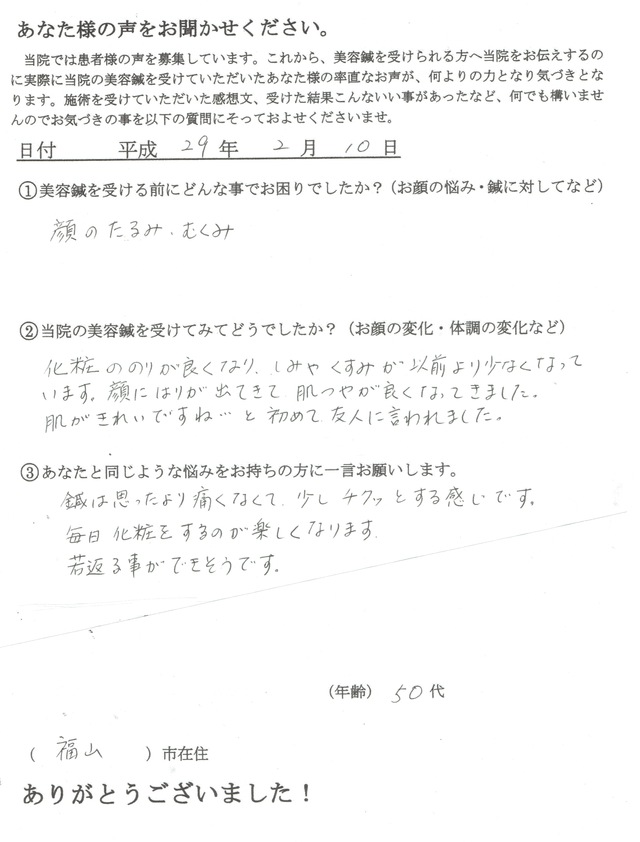 あなた様の声をお聞かせください。
当院では患者様の声を募集しています。これから、美容鍼を受けられる方へ当院をお伝えするの
に実際に当院の美容鍼を受けていただいたあなた様の率直なお声が、何よりの力となり気づきとな
ります。施術を受けていただいた感想文、受けた結果こんないい事があったなど、何でも構いませ
んのでお気づきの事を以下の質問にそっておよせくださいませ。
日付 平成 29 年 2 月 10 日
①美容鍼を受ける前にどんな事でお困りでしたか？（お顔の悩み・鍼に対してなど）
顔のたるみ、むくみ
②当院の美容鍼を受けてみてどうでしたか？（お顔の変化・体調の変化など）
化粧ののりが良くなり、しみやくすみが以前より少なくなって
います。顔にはりが出てきて、肌つやが良くなってきました。
肌がきれいですね…と初めて友人に言われました。
③あなたと同じような悩みをお持ちの方に一言お願いします。
鍼は思ったより痛くなくて、少しチクッとする感じです。
毎日化粧をするのが楽しくなります
若返る事ができそうです。
（年齢） 50代
（ 福山 ）市在住
ありがとうございました！